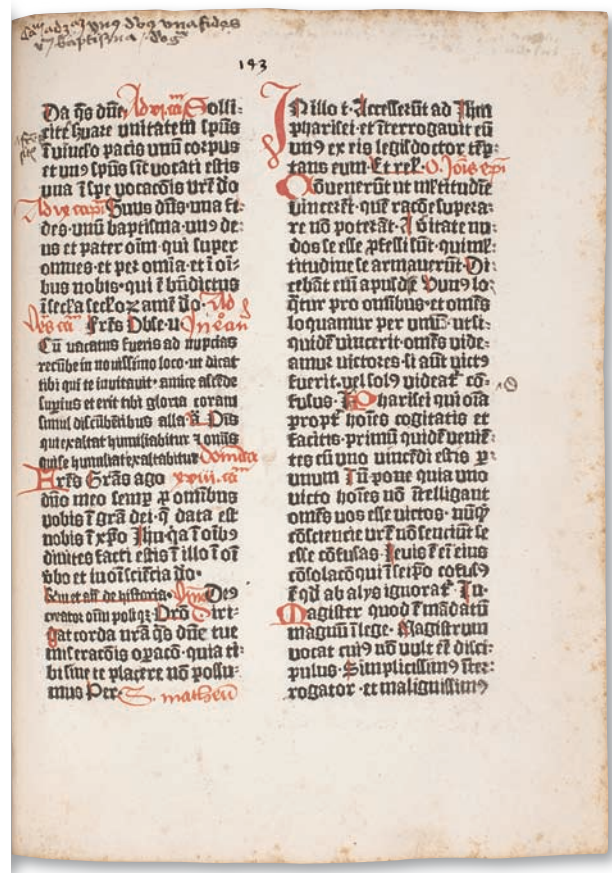 unus dominus una fides
baptisma
143
Da q̄s dn̄e Ad vi. cā Solli⸗
cite ẜuare unitatem spūs
ī vinclo pacis unū corpus
et unꝰ spūs sīc vocati estis
una ī spe vocacōis vrē do
Unus dn̄s una fi⸗
des unū baptisma unꝰ de⸗
us et pater oīm qui super
omnes et per om̄ia et ī oī⸗
bus nobis qui ē bn̄dictus
ī sec̄la sec̄loꝝ amē do
Frēs Obse
Cū vocatus fueris ad nupcias
recūbe in nouissimo loco ut dicat
tibi qui te inuitauit amice ascēde
suꝑius et erit tibi gloria coram
simul discūbētibus alla Oīs
qui exaltat humiliabitur ⁊ omīs
qui se humiliat exaltabitur
Frēs Grās ago xviii. cā
dn̄o meo semꝑ ꝓ omībus
vobis ī grā dei q̄ data est
nobis ī xp̄o Ihū q̄a ī oībꝰ
diuites facti estis ī illo ī oī
v̄bo et in oī sciēcia do
Deꝰ
creator oīm
Diri⸗
gat corda nrā q̄s dn̄e tue
miseracōis oꝑacō quia ti⸗
bi sine te placere nō possu⸗
mus Per S. matheū
IN illo t. Accesserūt ad Ihm
pharisei et īterrogauit eū
unꝰ ex eis legis doctor tēp⸗
tans eum Et rel. O. Iōis epī
Cōuenerūt ut ml̄titudīe
vincerēt quē racōe supera⸗
re nō poterāt A v̄itate nu⸗
dos se esse ꝓfessi sūt qui ml̄⸗
titudine se armauerūt Di⸗
cebāt eī apud se Ut unꝰ lo⸗
q̄tur pro omībus et om̄es
loquamur per unū ut si
quidē vincerit om̄es vide⸗
amur victores si aūt victꝰ
fuerit vel solꝰ videat cō⸗
fusus Pharisei qui oīa
propt hoīes cogitatis et
facitis primū quidē venīē⸗
tes cū uno vincēdi estis ꝑ
unum Tū pone quia uno
victo hoīes nō ītelligant
om̄es vos esse victos nūqͥd
cōsciencie vrē nō senciūt se
esse cōfusas Leuis ē eī eius
cōsolacō qui ī se ip̄o cōfusꝰ
ē qd̄ ab alijs ignorat In
Magister quod ē mādatū
magnū ī lege Magistrum
vocat cuiꝰ nō vult eē disci⸗
pulus Simplicissimꝰ īter⸗
rogator et malignissimꝰ